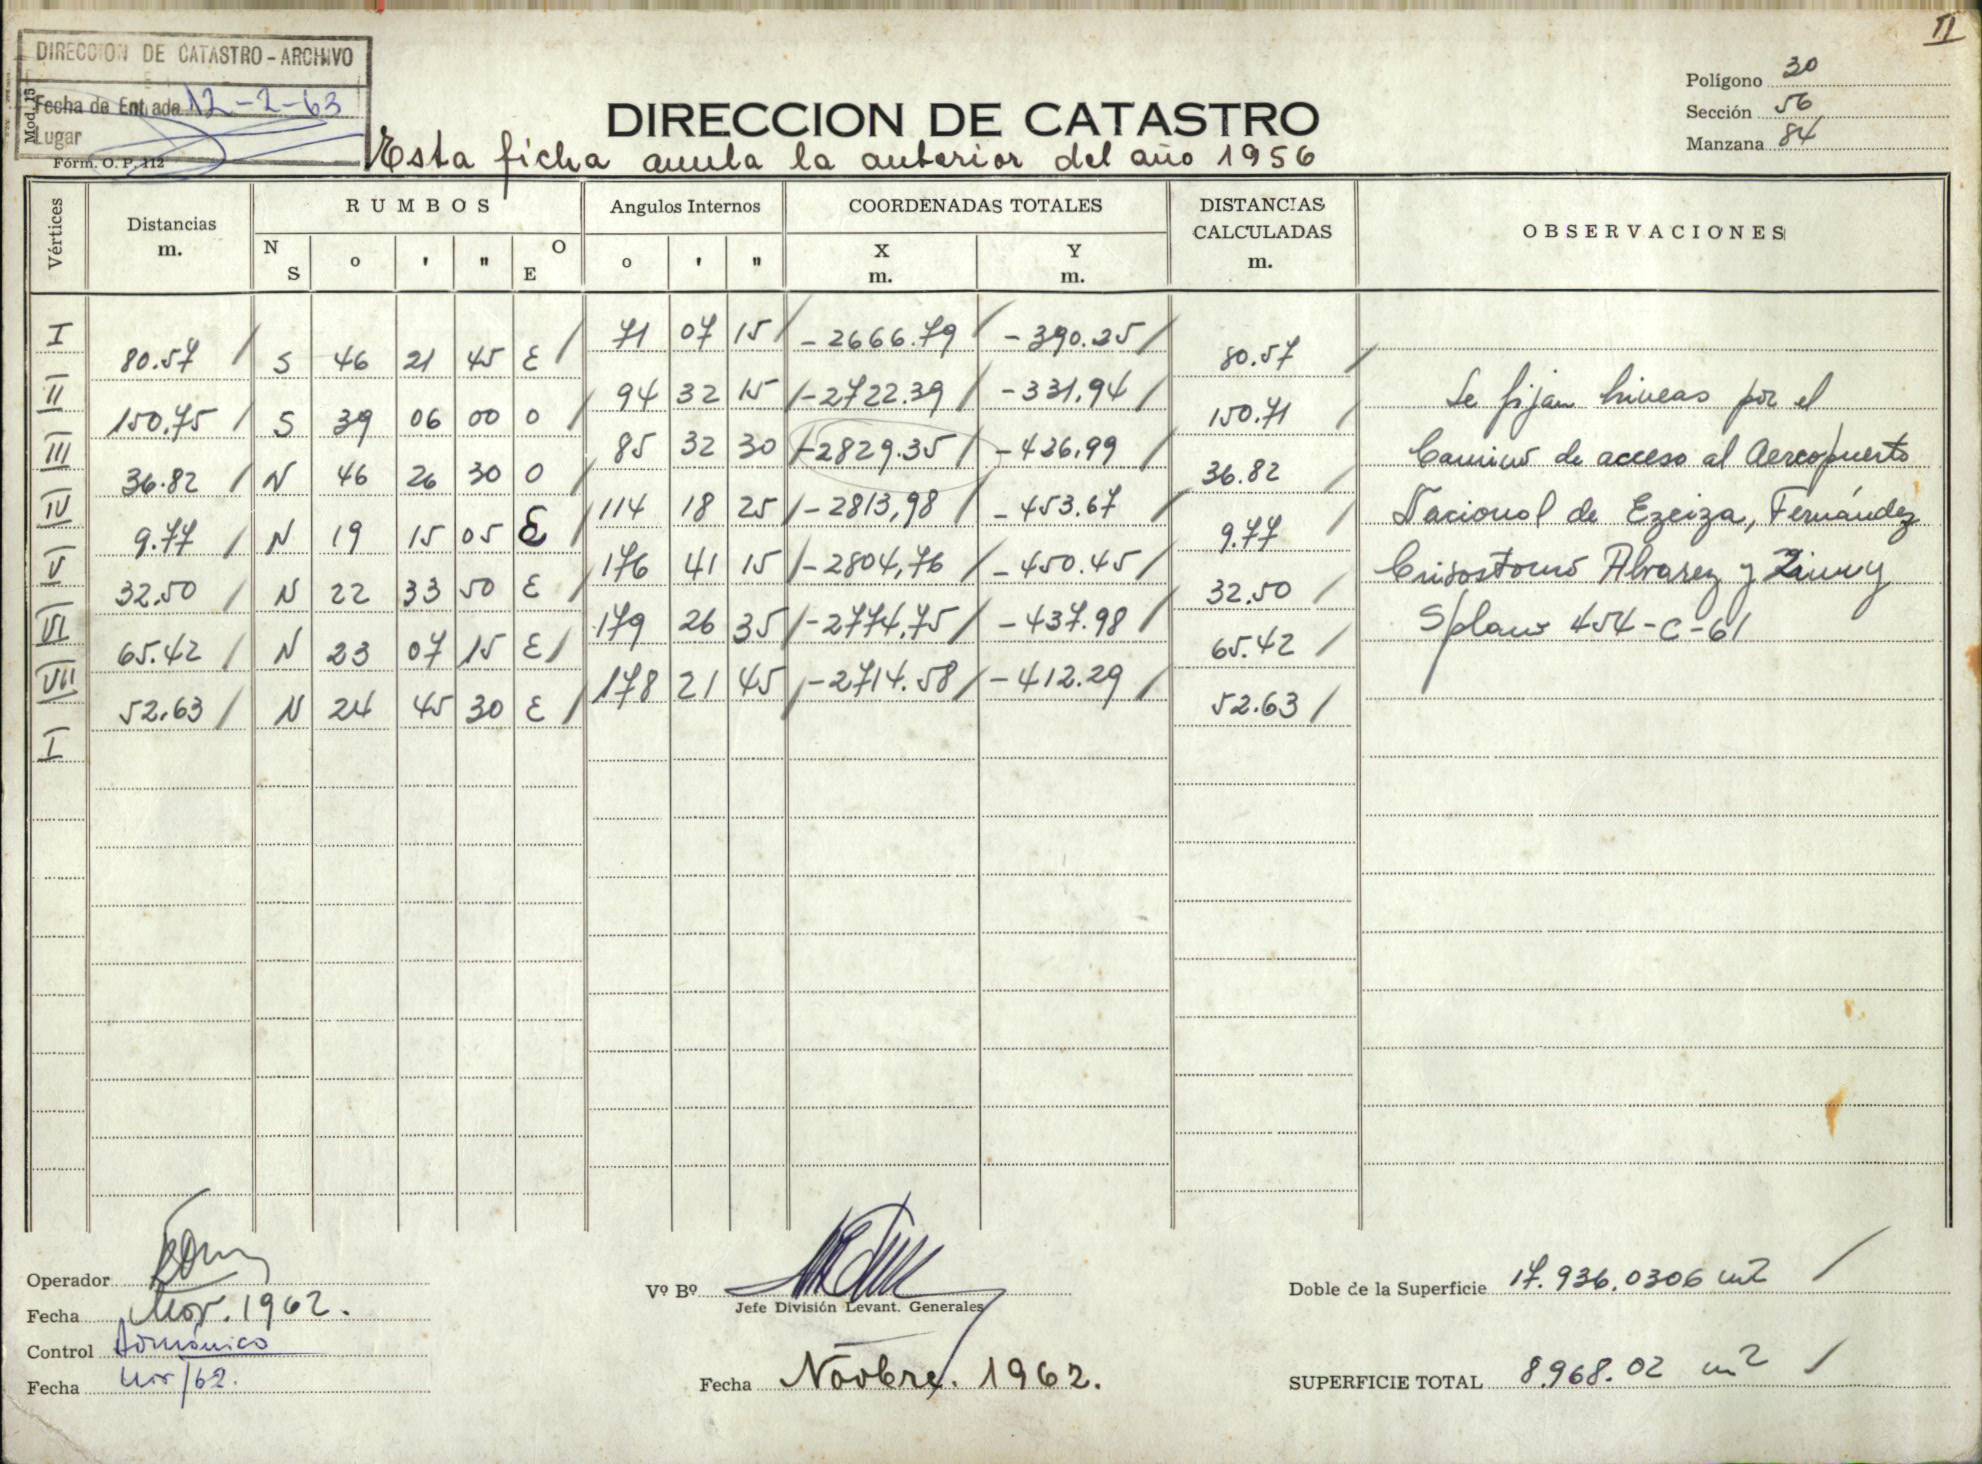 II
DIRECCION DE CATASTRO - ARCHIVO
Mod. 15
Fecha de Entrada 12-2-63
Lugar
Form. O. P. 112
DIRECCION DE CATASTRO
Esta ficha anula la anterior del año 1956
Polígono 30
Sección 56
Manzana 84
Vértices Distancias m. RUMBOS N S o ' " O E Angulos Internos o ' " COORDENADAS TOTALES X m. Y m. DISTANCIAS CALCULADAS m. OBSERVACIONES
I 71 07 15 -2666.79 -390.25
80.57 S 46 21 45 E 80.57
II 94 32 15 -2722.39 -331,94 Se fijan lineas por el
150.75 S 39 06 00 O 150.71
III 85 32 30 -2829.35 -426,99 Camino de acceso al Aeropuerto
36.82 N 46 26 30 O 36.82
IV 114 18 25 -2813,98 -453.67 Nacional de Ezeiza, Fernández
9.77 N 19 15 05 E 9.77
V 176 41 15 -2804,76 -450.45 Crisostomo Alvarez y Zinny
32.50 N 22 33 50 E 32.50
VI 179 26 35 -2774,75 -437.98 S/plano 454-C-61
65.42 N 23 07 15 E 65.42
VII 178 21 45 -2714.58 -412.29
52.63 N 24 45 30 E 52.63
I
Operador
Fecha Nov. 1962.
Control Doménico
Fecha Nov/62.
Vº Bº
Jefe División Levant. Generales
Fecha Novbre. 1962.
Doble de la Superficie 17.936,0306 m2
SUPERFICIE TOTAL 8.968.02 m2